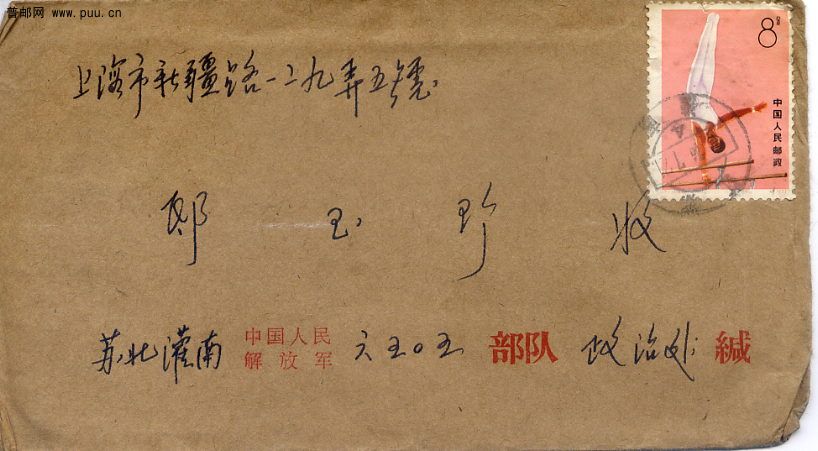 普邮网 www.puu.cn
8分
中国人民邮政
上海市新疆路一二九弄五号
玉珍 收
苏北灌南 中国人民解放军 六五〇五 部队 政治处 缄